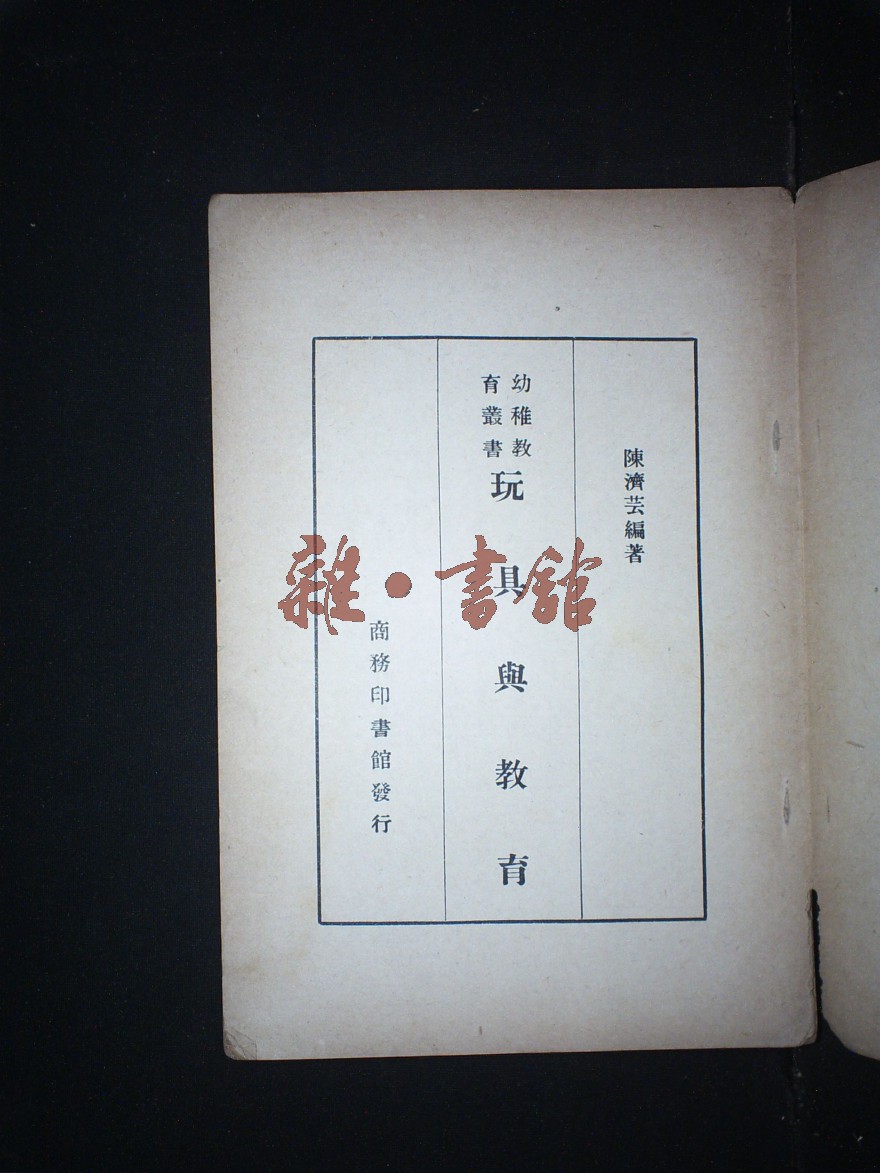 陳濟芸編著
幼稚教
育叢書
玩具與教育
商務印書館發行
雜·書館